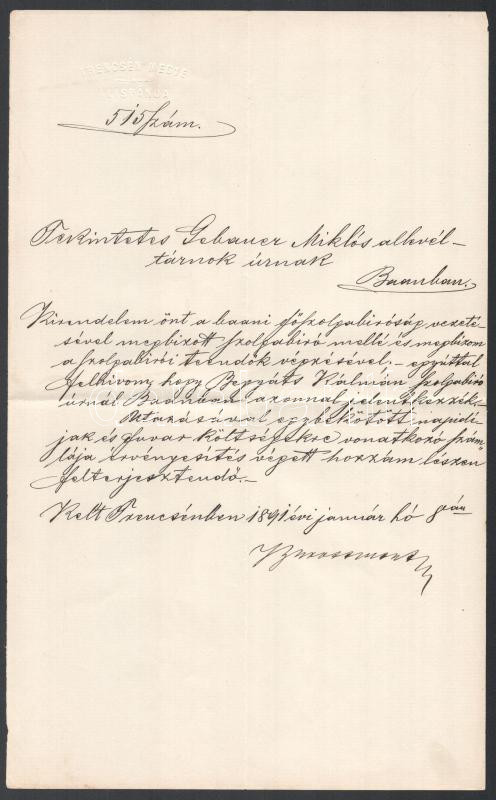 TRENCSÉN MEGYE
ALISPÁNJA
515 szám.
Tekintetes Gebauer Miklós allevél-
tárnok úrnak
Baanban.
Kirendelem önt a baani főszolgabiróság vezeté-
sével megbizott szolgabiró mellé és megbizom
a szolgabirói teendők végzésével. – egyúttal
felhivom, hogy Kálmán szolgabiró
úrnál Baanban azonnal jelentkezzék.
Utazásával egybekötött napidi-
jak és fuvar költségekre vonatkozó szám-
lája érvényesités végett hozzám lészen
felterjesztendő. –
Kelt Trencsénben 1891 évi január hó 8án